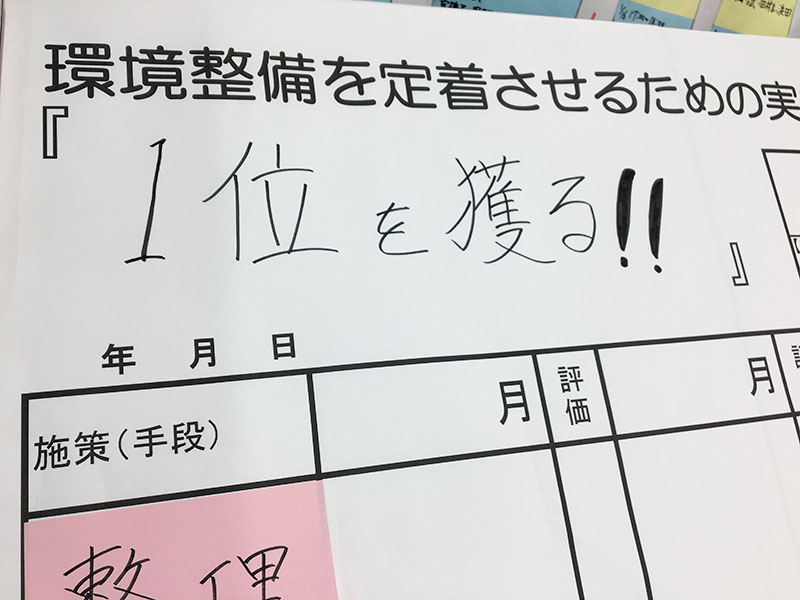 環境整備を定着させるための実
『
1位を獲る!!
』
年 月 日
施策(手段) 月 評価 月
整理